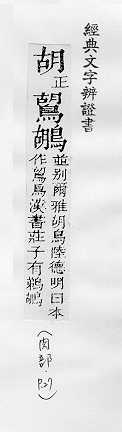 經典文字辨證書
胡正鶘
並別爾雅胡鳥陸德明曰本
作鳥漢書莊子有鵜鶘
(肉部.P27)